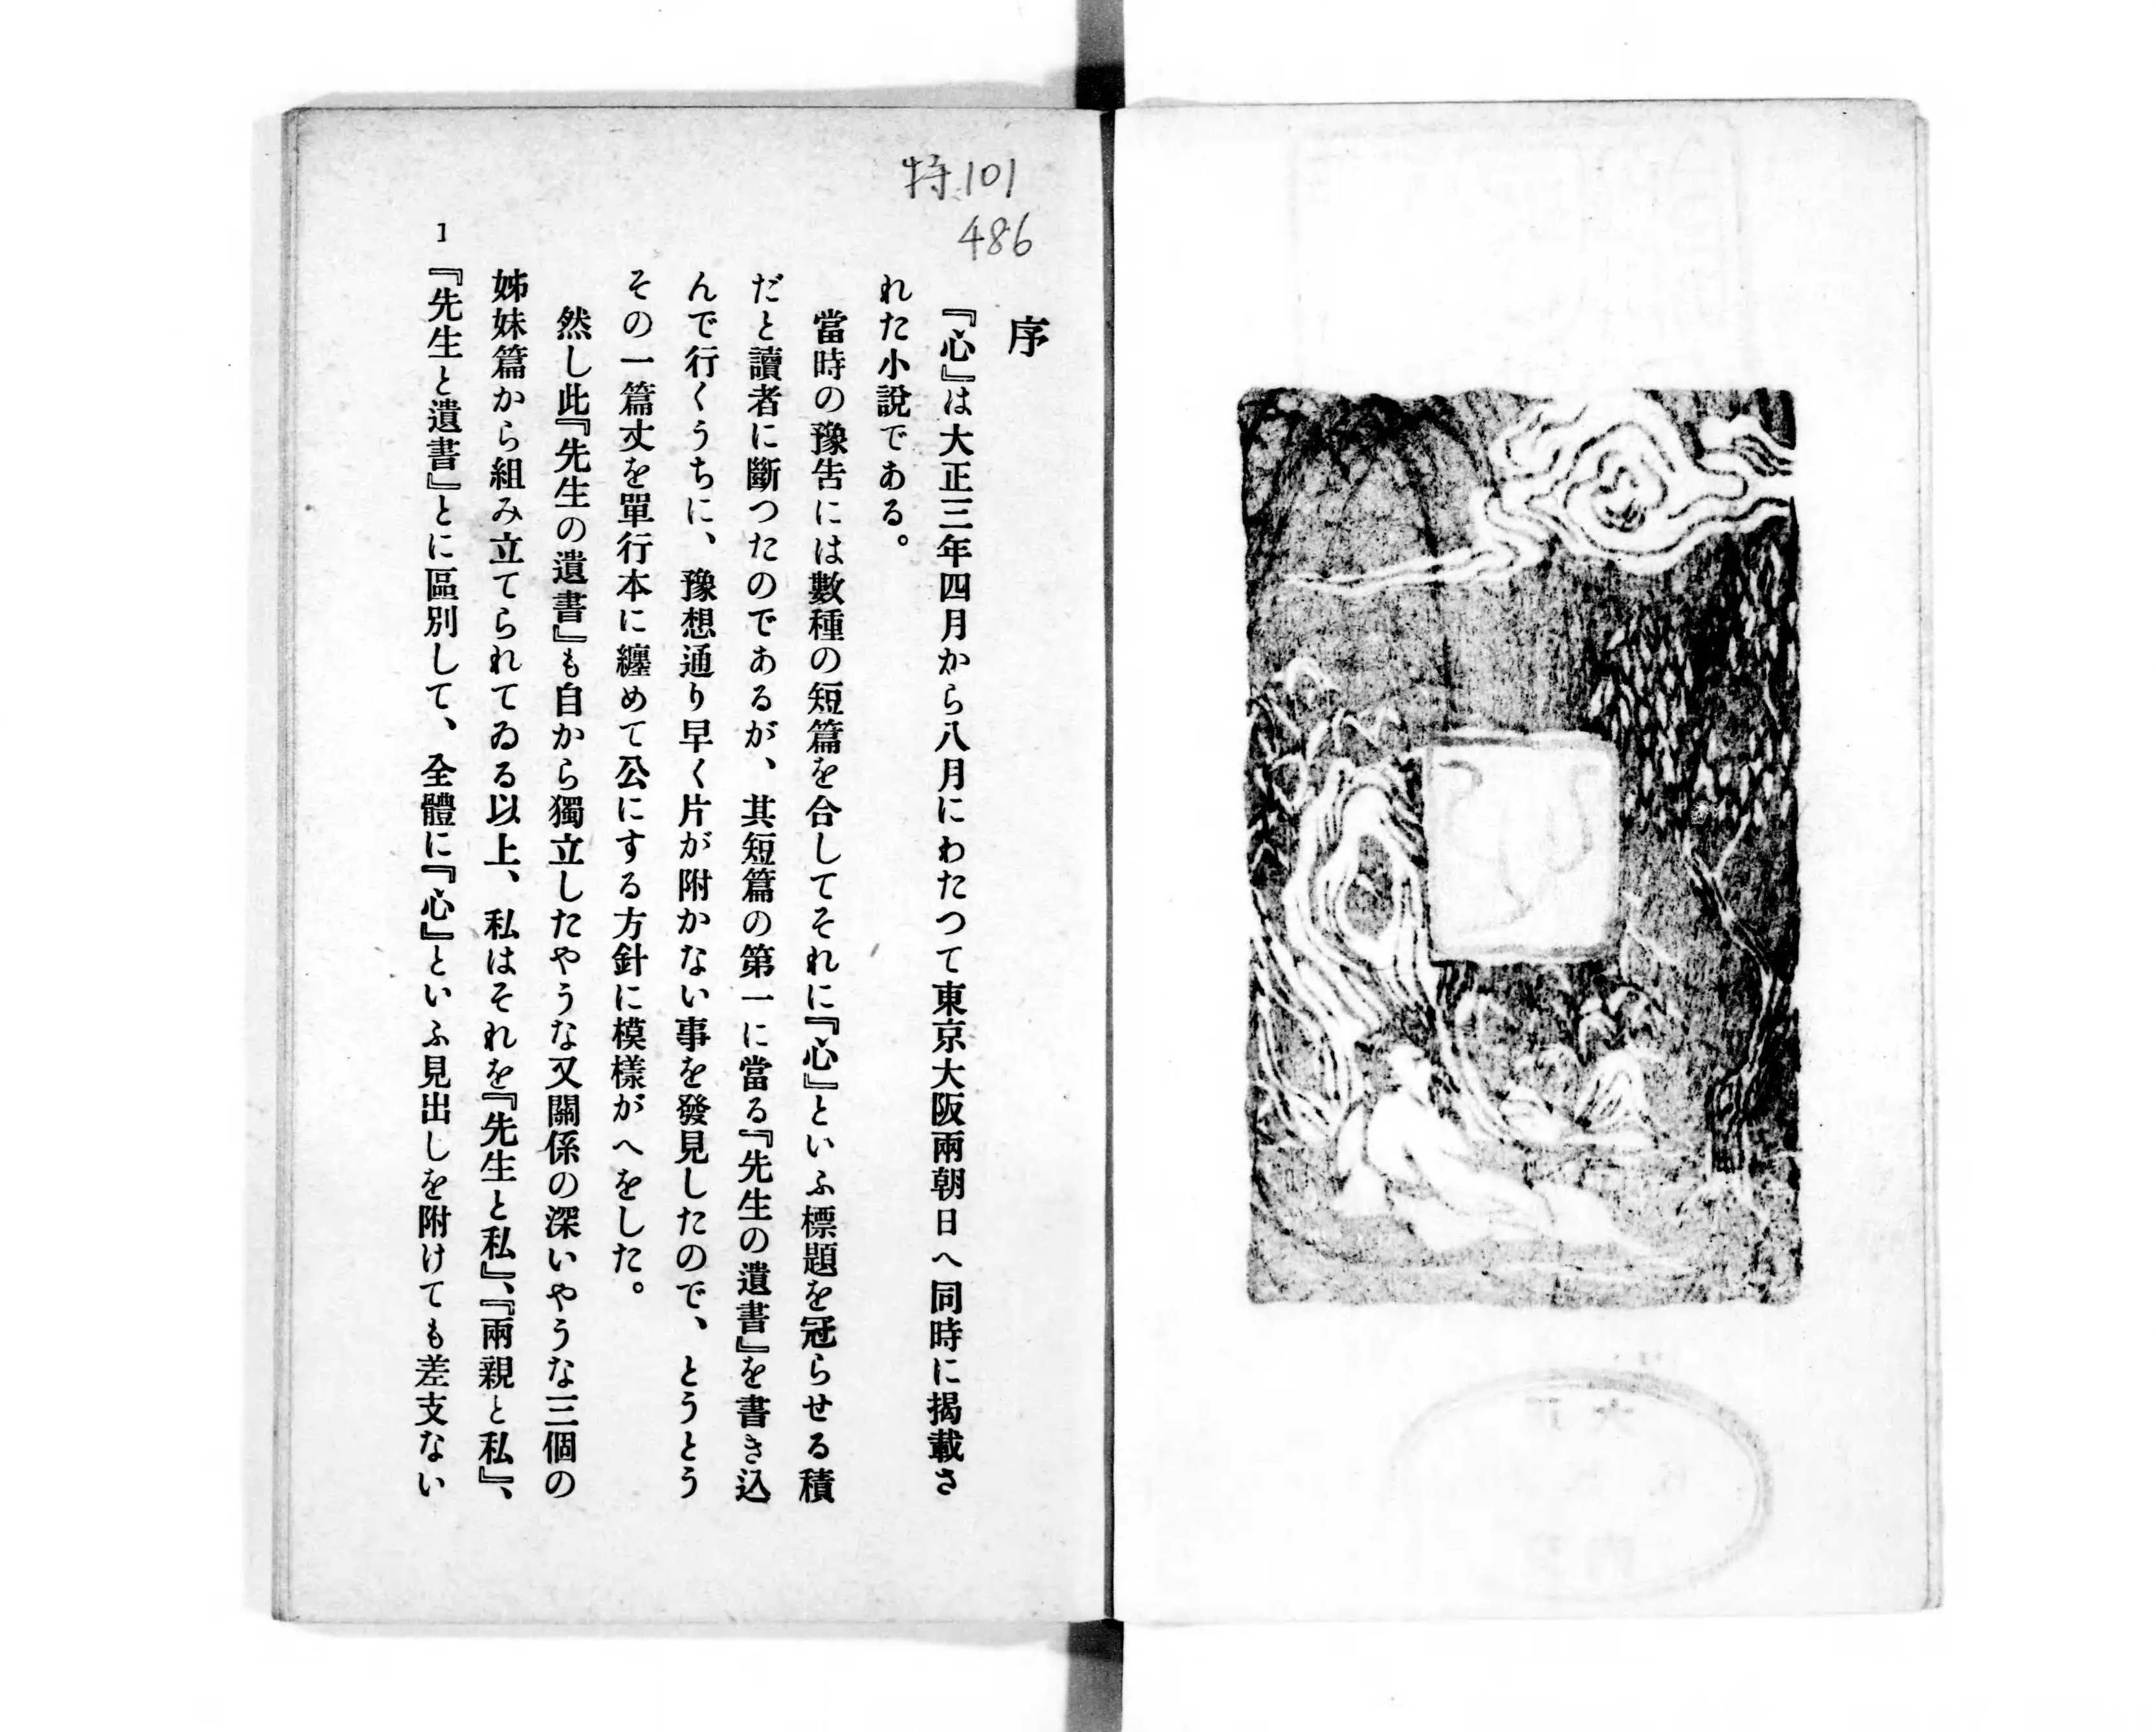 特101
486
序
『心』は大正三年四月から八月にわたつて東京大阪兩朝日へ同時に揭載さ
れた小說である。
當時の豫吿には數種の短篇を合してそれに『心』といふ標題を冠らせる積
だと讀者に斷つたのであるが、其短篇の第一に當る『先生の遺書』を書き込
んで行くうちに、豫想通り早く片が附かない事を發見したので、とうとう
その一篇丈を單行本に纏めて公にする方針に模樣がへをした。
然し此『先生の遺書』も自から獨立したやうな又關係の深いやうな三個の
姊妹篇から組み立てられてゐる以上、私はそれを『先生と私』、『兩親と私』、
『先生と遺書』とに區別して、全體に『心』といふ見出しを附けても差支ない
1